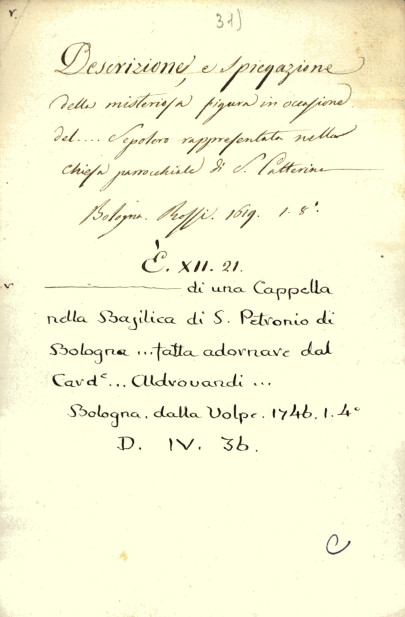 31)
Descrizione, e spiegazione
della misteriosa figura in occasione
del.... Sepolcro rappresentata nella
chiesa parrochiale di S. Catterina
Bologna. Rossi. 1619. 1. 8°.
È. XII. 21.
di una Cappella
nella Basilica di S. Petronio di
Bologna ... fatta adornare dal
Card.e ... Aldrovandi ...
Bologna. dalla Volpe. 1746. 1. 4°
D. IV. 36.
C